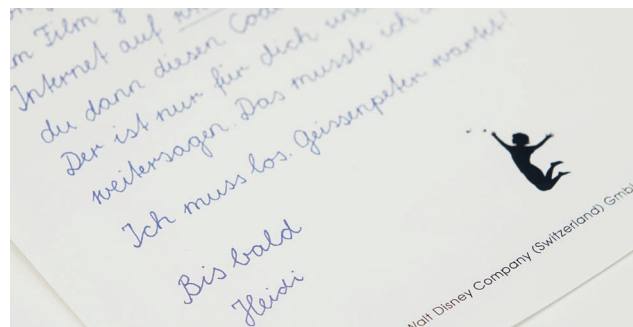 m Film
Internet auf
du dann diesen
Der ist nur für dich und
weitersagen. Das musste ich
Ich muss los. Geissenpeter wartet!
Bis bald
Heidi
Walt Disney Company (Switzerland) GmbH